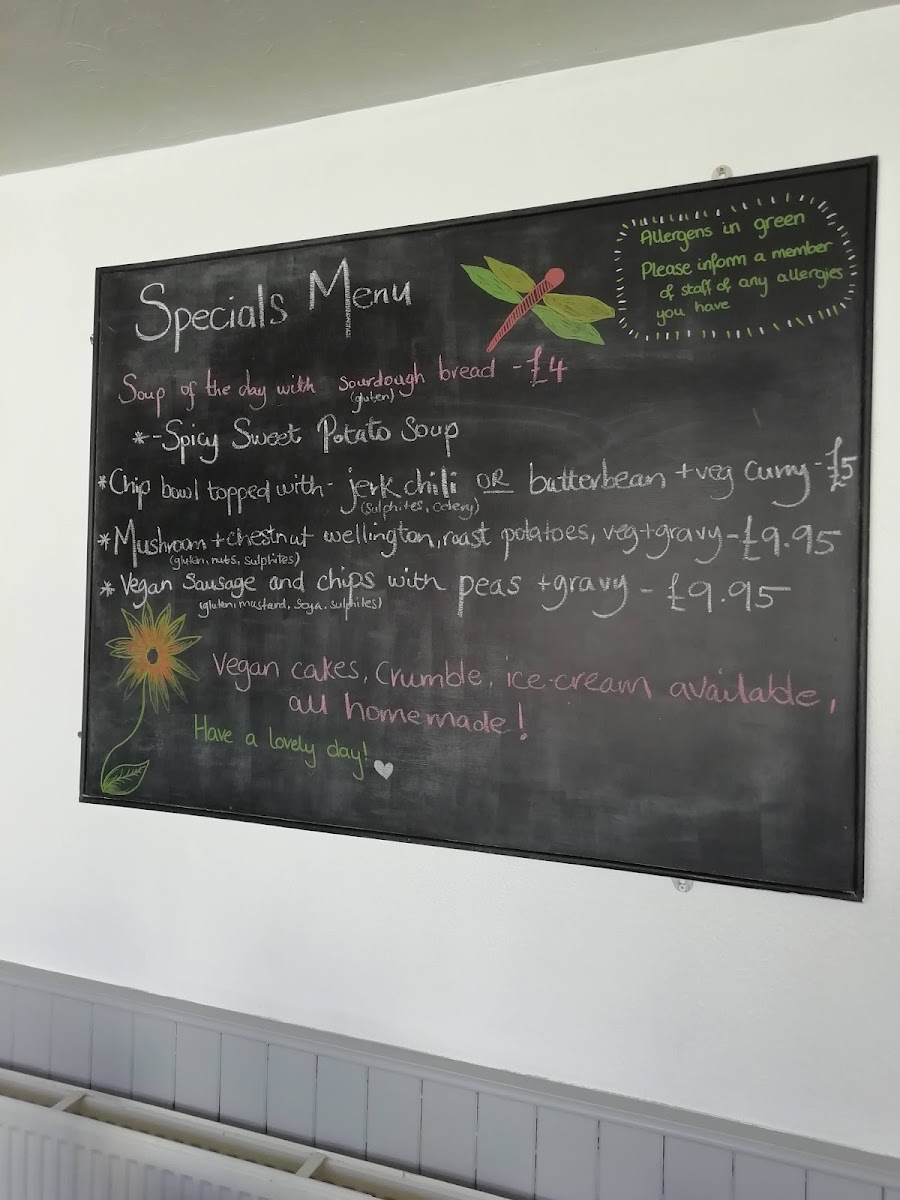 Allergens in green
Please inform a member
of staff of any allergies
you have
Specials Menu
Soup of the day with sourdough bread - £4
(gluten)
*-Spicy Sweet Potato Soup
*Chip bowl topped with- jerk chili OR butterbean + veg curry - £5
(sulphites, celery)
*Mushroom + chestnut wellington, roast potatoes, veg + gravy - £9.95
(gluten, nuts, sulphites)
* Vegan Sausage and chips with peas + gravy - £9.95
(gluten, mustard, soya, sulphites)
Vegan cakes, Crumble, ice-cream available,
all homemade!
Have a lovely day!